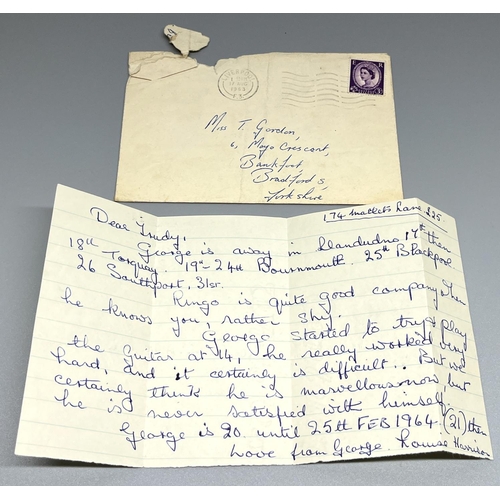 LIVERPOOL
1963
Miss T. Gordon,
6, Mayo Crescent,
Bankfoot,
Bradford 5,
Yorkshire
174 Mackets Lane L25
Dear Trudy,
George is away in Llandudno, 17th then
18th Torquay. 19-24th Bournmouth. 25th Blackpool
26 Southport, 31st.
Ringo is quite good company when
he knows you, rather shy.
George started to try & play
the Guitar at 14, he really worked very
hard, and it certainly is difficult.. But we
certainly think he is marvellous now, but
he is never satisfied with himself.
George is 20. until 25th FEB 1964. (21) then
Love from George. Louise Harrison